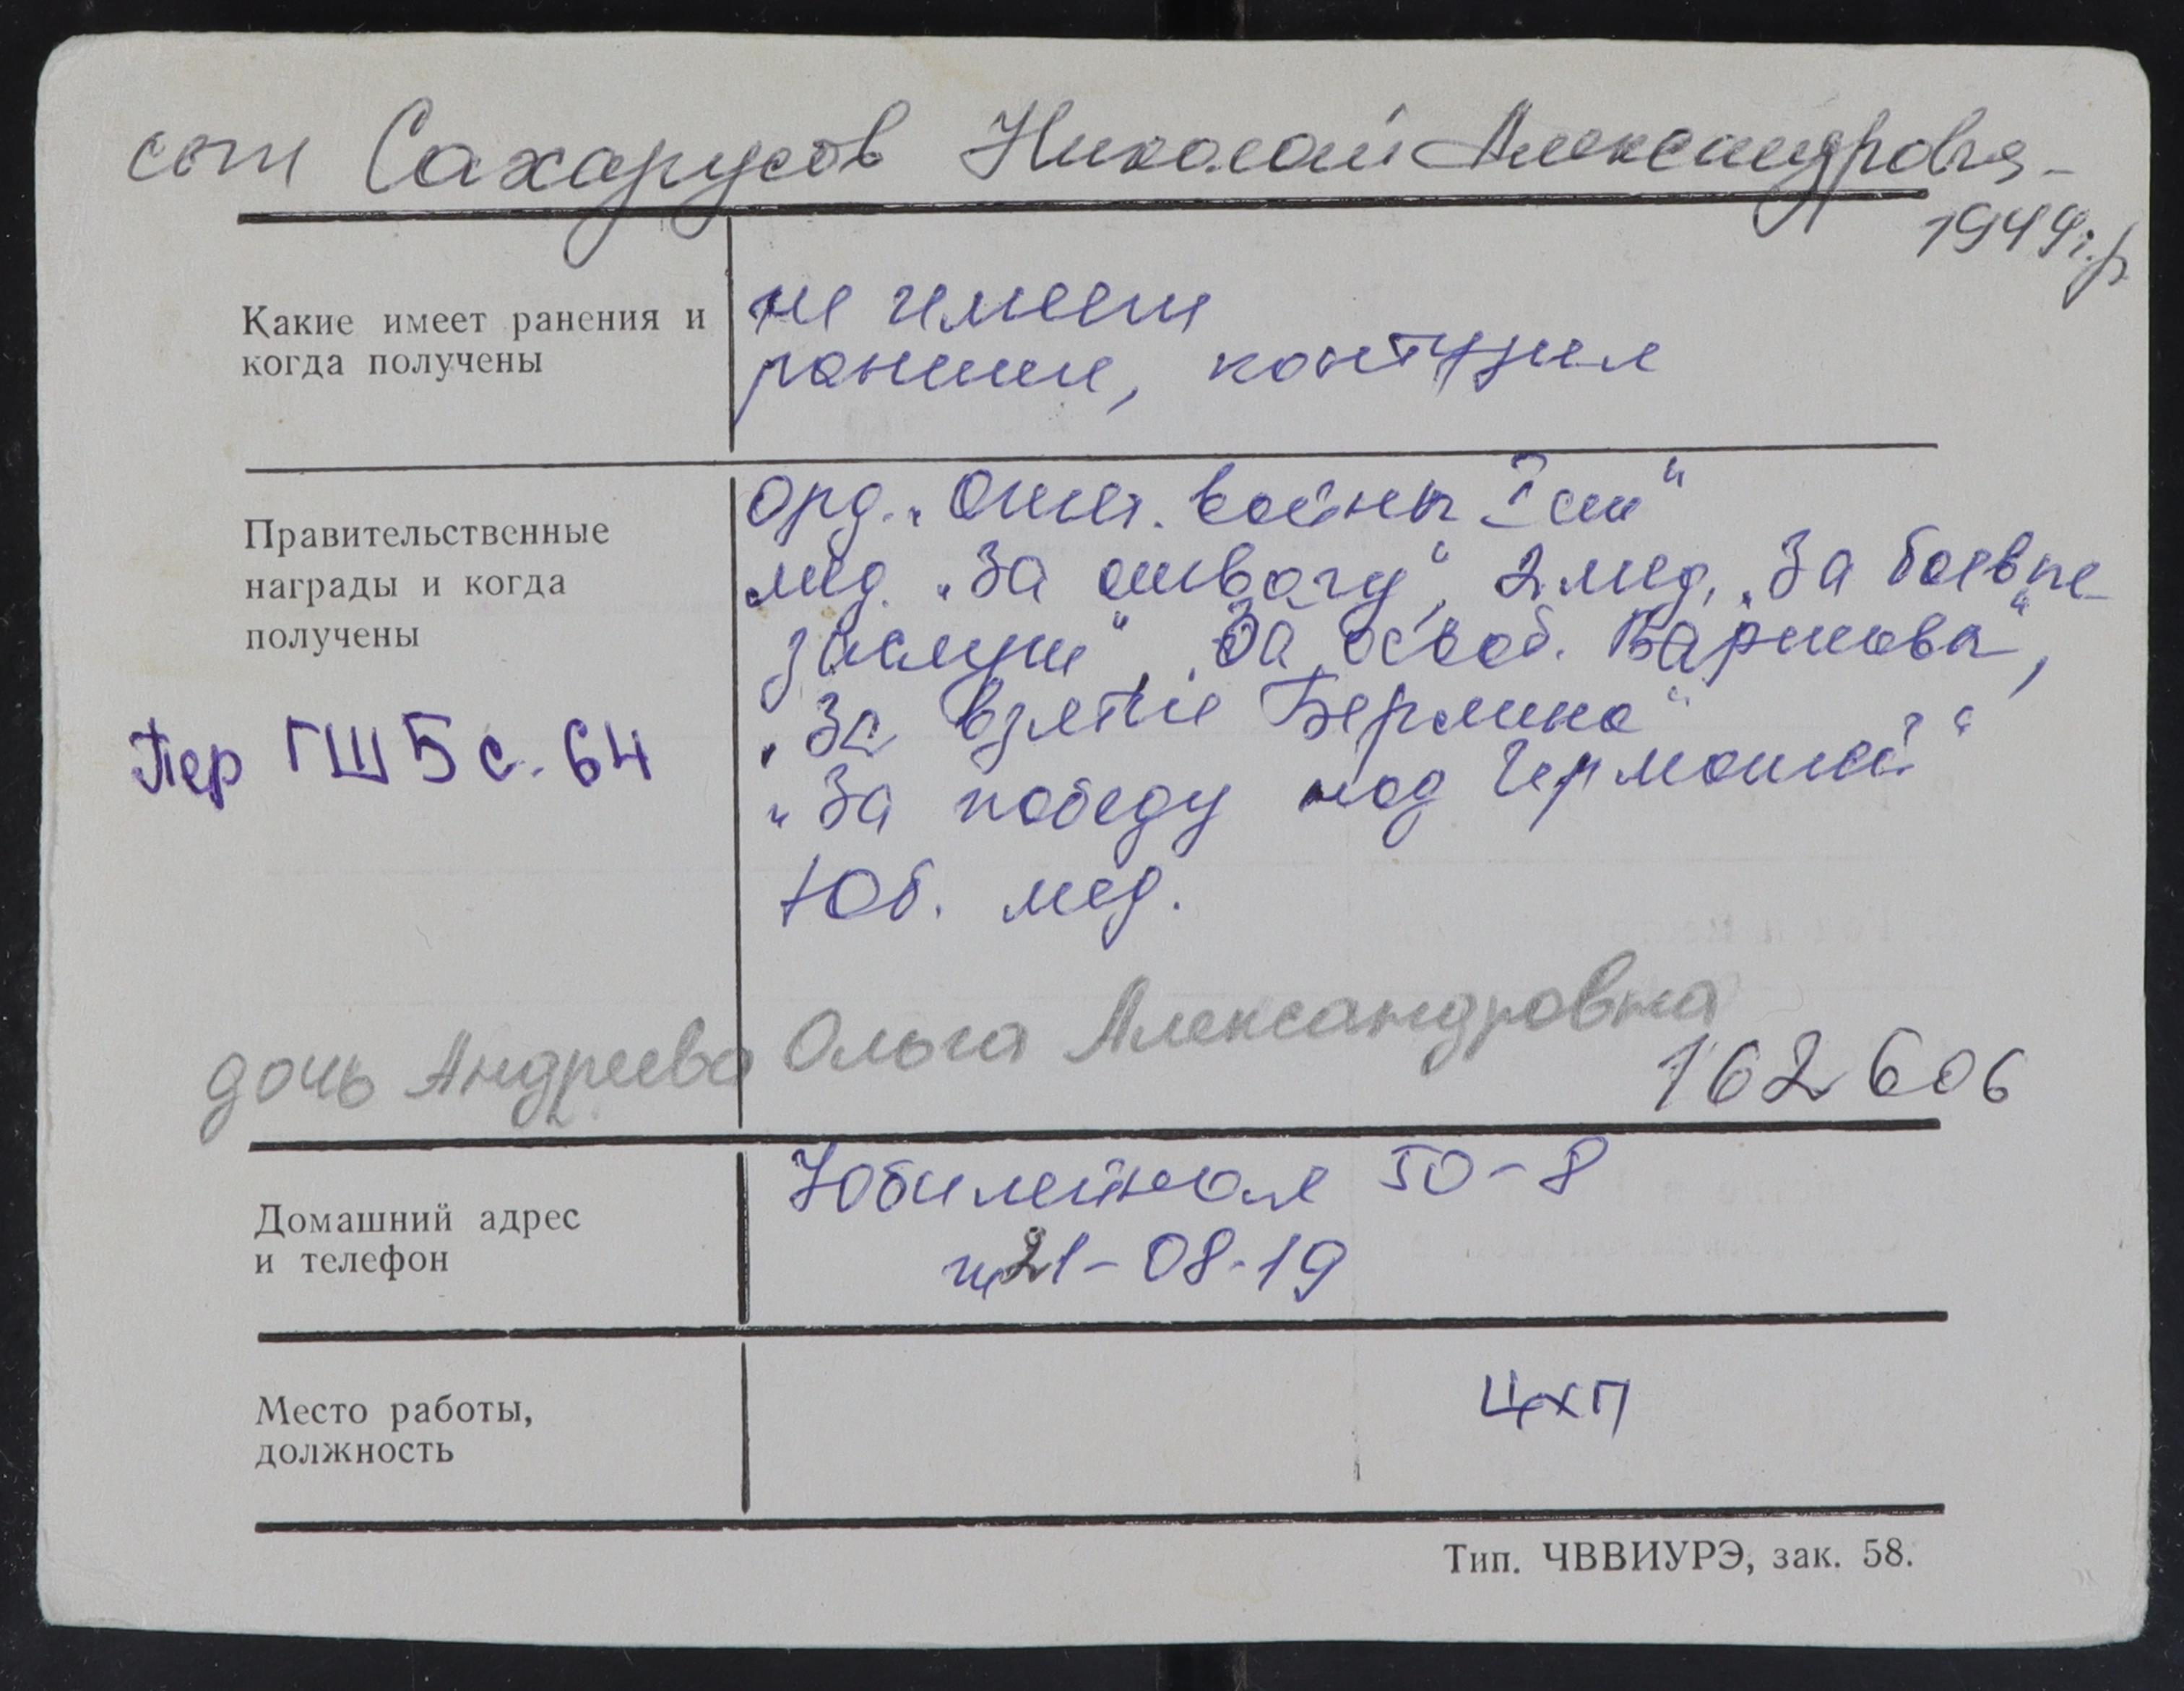 сын Сахарусов Николай Александрович
1949 г.р.
Какие имеет ранения и
когда получены
не имеет
ранении, контузия
Правительственные
награды и когда
получены
Орд. „Отеч. войны I ст“
мед. „За отвагу“, 2 мед. „За боевые
заслуги“, „За освоб. Варшавы“,
„За взятие Берлина“
„За победу над Германией“
Юб. мед.
Пер ГШ 5 с. 64
дочь Андреева Ольга Александровна
162 606
Домашний адрес
и телефон
Юбилейная 50-8
21-08-19
Место работы,
должность
ЦХП
Тип. ЧВВИУРЭ, зак. 58.